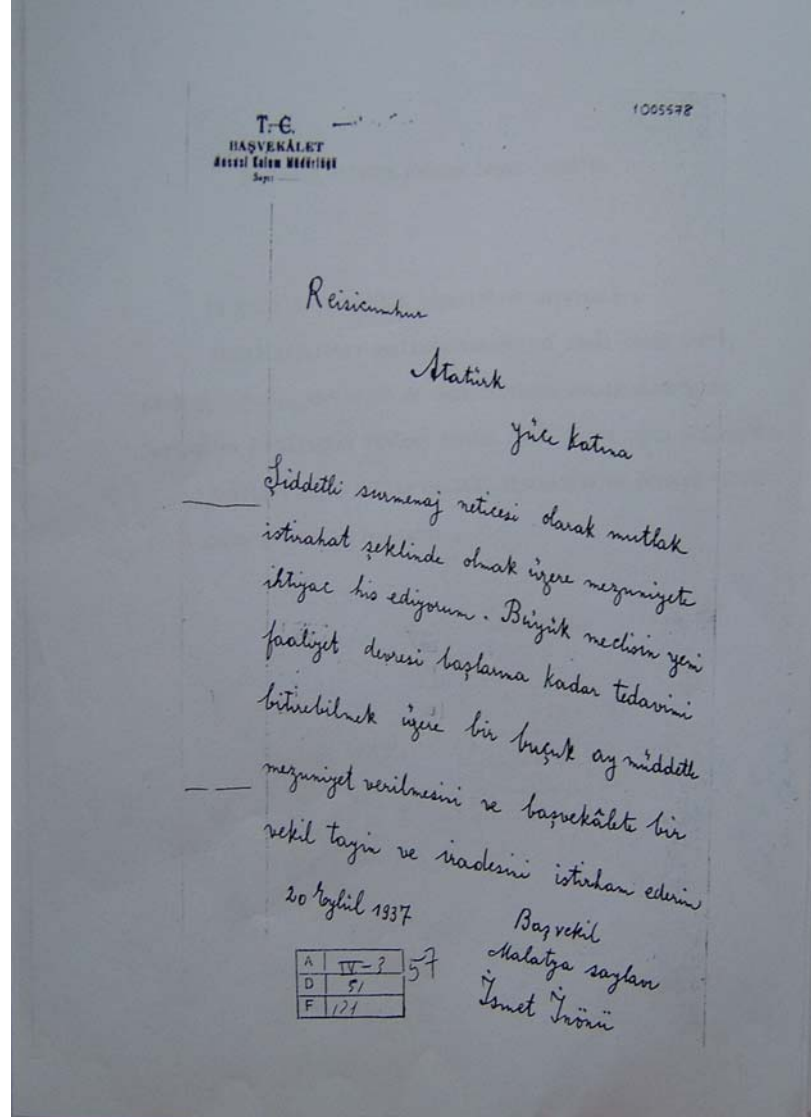 1005578
T. C.
BAŞVEKÂLET
Hususî Kalem Müdürlüğü
Sayı
Reisicumhur
Atatürk
Yüce Katına
Şiddetli surmenaj neticesi olarak mutlak
istirahat şeklinde olmak üzere mezuniyete
ihtiyac his ediyorum. Büyük meclisin yeni
faaliyet devresi başlarına kadar tedavimi
bitirebilmek üzere bir buçuk ay müddetle
mezuniyet verilmesini ve başvekâlete bir
vekil tayin ve iradesini istirham ederim
20 Eylül 1937
Başvekil
Malatya saylavı
İsmet İnönü
A IV-3 57
D 51
F 121